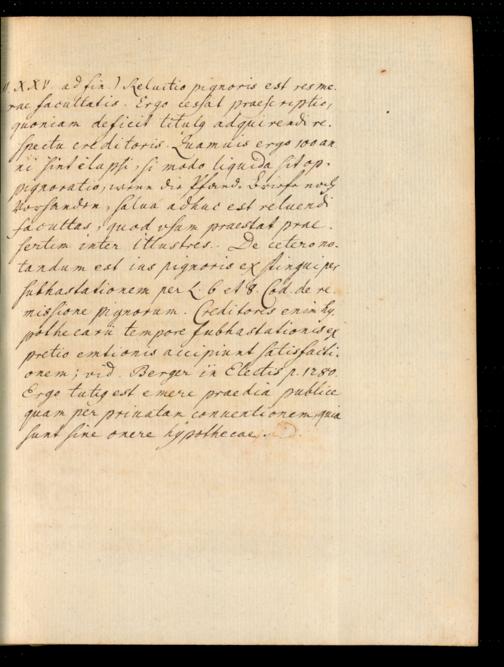 XXV. ad fin.) Reluitio pignoris est res me.
rae facultatis. Ergo cessat praescriptio,
quoniam deficit titulq adquirendi re.
spectu creditoris. Quamuis ergo 100 an.
ni sint elapsi, si modo liquida sit op.
pignoratio, wenn die Pfand-Briefe noch
vorhanden, salua adhuc est reluendi
facultas, quod vsum praestat prae.
sertim inter illustres. De cetero no.
tandum est ius pignoris exstingui per
subhastationem per L. 6 et 8. Cod. de re
missione pignorum. Creditores enim hy.
pothecarii tempore subhastationis ex
pretio emtionis accipiunt satisfacti.
onem; vid. Berger in Electis p. 1280.
Ergo tutiq est emere praedia publice
quam per priuatam conuentionem quia
sunt sine onere hypothecae.